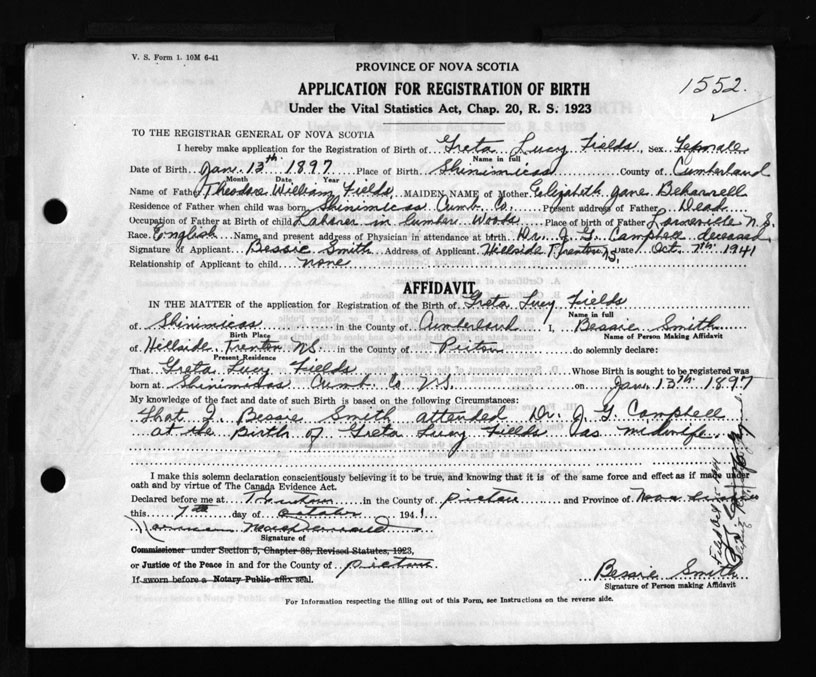 V. S. Form 1. 10M 6-41
PROVINCE OF NOVA SCOTIA
APPLICATION FOR REGISTRATION OF BIRTH
Under the Vital Statistics Act, Chap. 20, R. S. 1923
1552.
TO THE REGISTRAR GENERAL OF NOVA SCOTIA
I hereby make application for the Registration of Birth of Greta Lucy Fields, Sex Female
Name in full
Date of Birth Jan. 13th 1897 Place of Birth Shinimicas County of Cumberland
Month Date Year
Name of Father Theodore William Fields MAIDEN NAME of Mother Elizabeth Jane Beharrell
Residence of Father when child was born Shinimicas Cumb. Co. Present address of Father Dead
Occupation of Father at Birth of child Laborer in lumber Woods Place of birth of Father Lorneville N.S.
Race English Name and present address of Physician in attendance at birth Dr. J. G. Campbell deceased
Signature of Applicant Bessie Smith Address of Applicant Hillside Trenton N.S. Date Oct. 7th 1941
Relationship of Applicant to child none
AFFIDAVIT
IN THE MATTER of the application for Registration of the Birth of Greta Lucy Fields
Name in full
of Shinimicas in the County of Cumberland I, Bessie Smith
Birth Place Name of Person Making Affidavit
of Hillside Trenton NS. in the County of Pictou do solemnly declare:
Present Residence
That Greta Lucy Fields Whose Birth is sought to be registered was
born at Shinimicas Cumb. Co NS. on Jan. 13th 1897
My knowledge of the fact and date of such Birth is based on the following Circumstances:
That I Bessie Smith attended Dr. J G Campbell
at the Birth of Greta Lucy Fields as midwife.
I make this solemn declaration conscientiously believing it to be true, and knowing that it is of the same force and effect as if made under
oath and by virtue of The Canada Evidence Act.
Declared before me at Trenton in the County of Pictou and Province of Nova Scotia
this 7th day of October 1941.
Signature of
Commissioner under Section 5, Chapter 38, Revised Statutes, 1923,
or Justice of the Peace in and for the County of Pictou
If sworn before a Notary Public affix seal.
Bessie Smith
Signature of Person making Affidavit
For Information respecting the filling out of this Form, see Instructions on the reverse side.